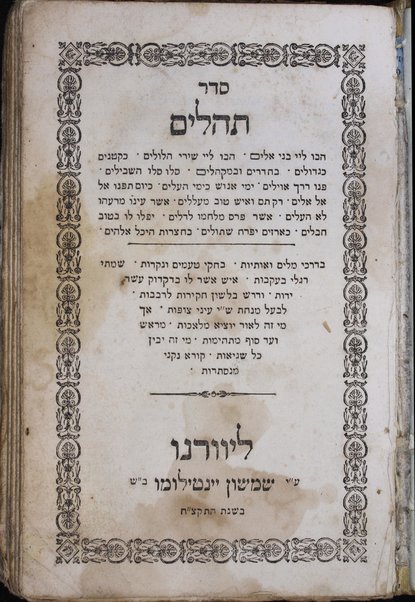 סדר
תהלים
הבו ליי בני אלים · הבו ליי שירי הלולים · כקטנים
כגדולים · בחדרים ובמקהלים · סולו סלו השבילים ·
פנו דרך אוילים · ימי אנוש כימי העלים · כיום תפנו אל
אל אלים · רקתם ואיש טוב מעללים · אשר עינו מרעהו
לא העלים · אשר פרס מלחמו לדלים · יפלו לו בטוב
חבלים · כארזים יפרח שתולים · בחצרות היכל אלהים ·
בדרכי מלים ואותיות · בחקי טעמים ונקדות · שמתי
רגלי בעקבות · איש אשר לו בדקדוק עשר
ידות · ודרש בלשון חקירות לרבבות ·
לבעל מנחת ש״י עיני צופות · אך
מי זה לאור יוציא מלאכות · מראש
ועד סוף מתהימות · מי זה יבין
כל שגיאות · קורא נקני
מנסתרות ·
ליוורנו
ע״י שמשון יינטילומו ב״ש
בשנת התקצ״ח